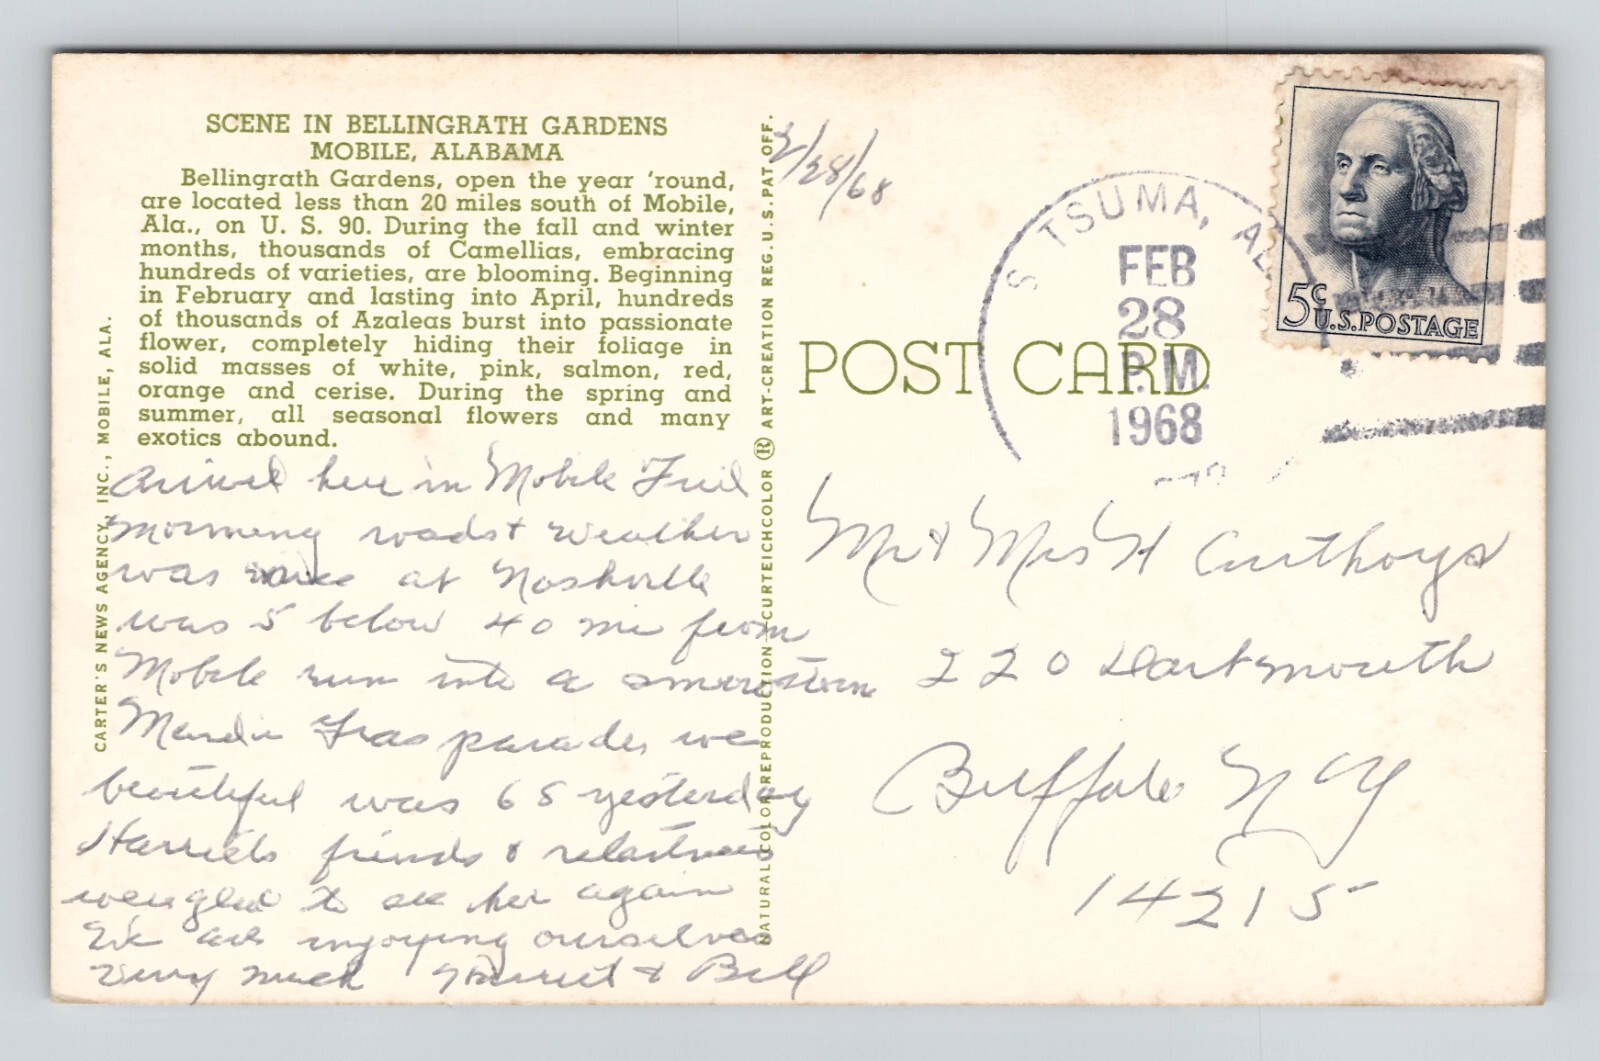 SCENE IN BELLINGRATH GARDENS
MOBILE, ALABAMA
Bellingrath Gardens, open the year 'round,
are located less than 20 miles south of Mobile,
Ala., on U. S. 90. During the fall and winter
months, thousands of Camellias, embracing
hundreds of varieties, are blooming. Beginning
in February and lasting into April, hundreds
of thousands of Azaleas burst into passionate
flower, completely hiding their foliage in
solid masses of white, pink, salmon, red,
orange and cerise. During the spring and
summer, all seasonal flowers and many
exotics abound.
CARTER'S NEWS AGENCY, INC., MOBILE, ALA.
Arrived here in Mobile
Morning roads & weather
was nice at Nashville
was 5 below 40 mi from
Mobile run into a
Mardi Gras parades
beautiful was 65 yesterday
Harriets friends & relatives
were glad to see her again
We are injoying ourselves
very much Harriet & Bill
NATURAL COLOR REPRODUCTION—CURTEICHCOLOR ® ART-CREATION REG. U. S. PAT. OFF.
2/28/68
POST CARD
S TSUMA, AL
FEB
28
P.M.
1968
5c
U.S.POSTAGE
Mr & Mrs H Curthoys
220 Dartmouth
Buffalo N Y
14215